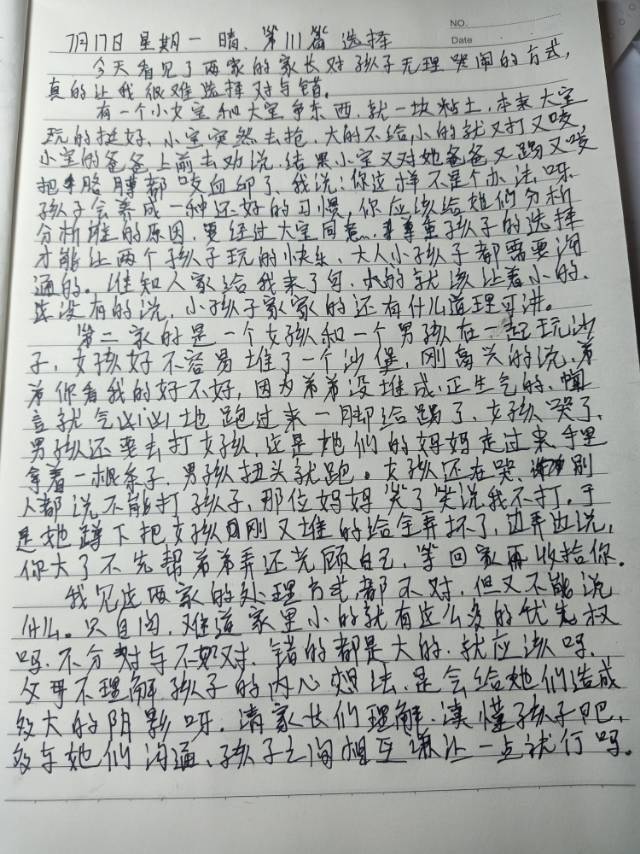 NO.
Date
7月17日 星期一 晴. 第111篇 选择
今天看见了两家的家长对孩子无理哭闹的方式,
真的让我很难选择对与错。
有一个小女宝和大宝争东西,就一块粘土,本来大宝
玩的挺好,小宝突然去抢,大的不给,小的就又打又咬,
小宝的爸爸上前去劝说,结果小宝又对她爸爸又踢又咬
把手胳膊都咬血印了,我说:你这样不是个办法呀.
孩子会养成一种还好的习惯,你应该给她们分析
分析谁的原因,要经过大宝同意,尊重孩子的选择
才能让两个孩子玩的快乐,大人小孩子都需要沟
通的。谁知人家给我来了句,大的就该让着小的.
没有的说,小孩子家家的还有什么道理可讲。
第二家的是一个女孩和一个男孩在一起玩沙
子,女孩好不容易堆了一个沙堡,刚高兴的说,弟
弟你看我的好不好,因为弟弟没堆成,正生气的,
言就气汹汹地跑过来一脚给踢了,女孩哭了,
男孩还要去打女孩,这是她们的妈妈走过来手里
拿着一根条子,男孩扭头就跑。女孩还在哭,别
人都说不能打孩子,那位妈妈笑了笑说我不打.于
是她蹲下把女孩刚又堆的给全弄坏了,边弄边说,
你大了不先帮弟弟弄还光顾自己,等回家再收拾你。
我见这两家的处理方式都不对,但又不能说
什么。只自问,难道家里小的就有这么多的优先权
吗.不分对与不对.错的都是大的.就应该吗.
父母不理解孩子的内心想法,是会给她们造成
较大的阴影呀.请家长们理解.读懂孩子吧,
多与她们沟通,孩子之间相互谦让一点就行吗。